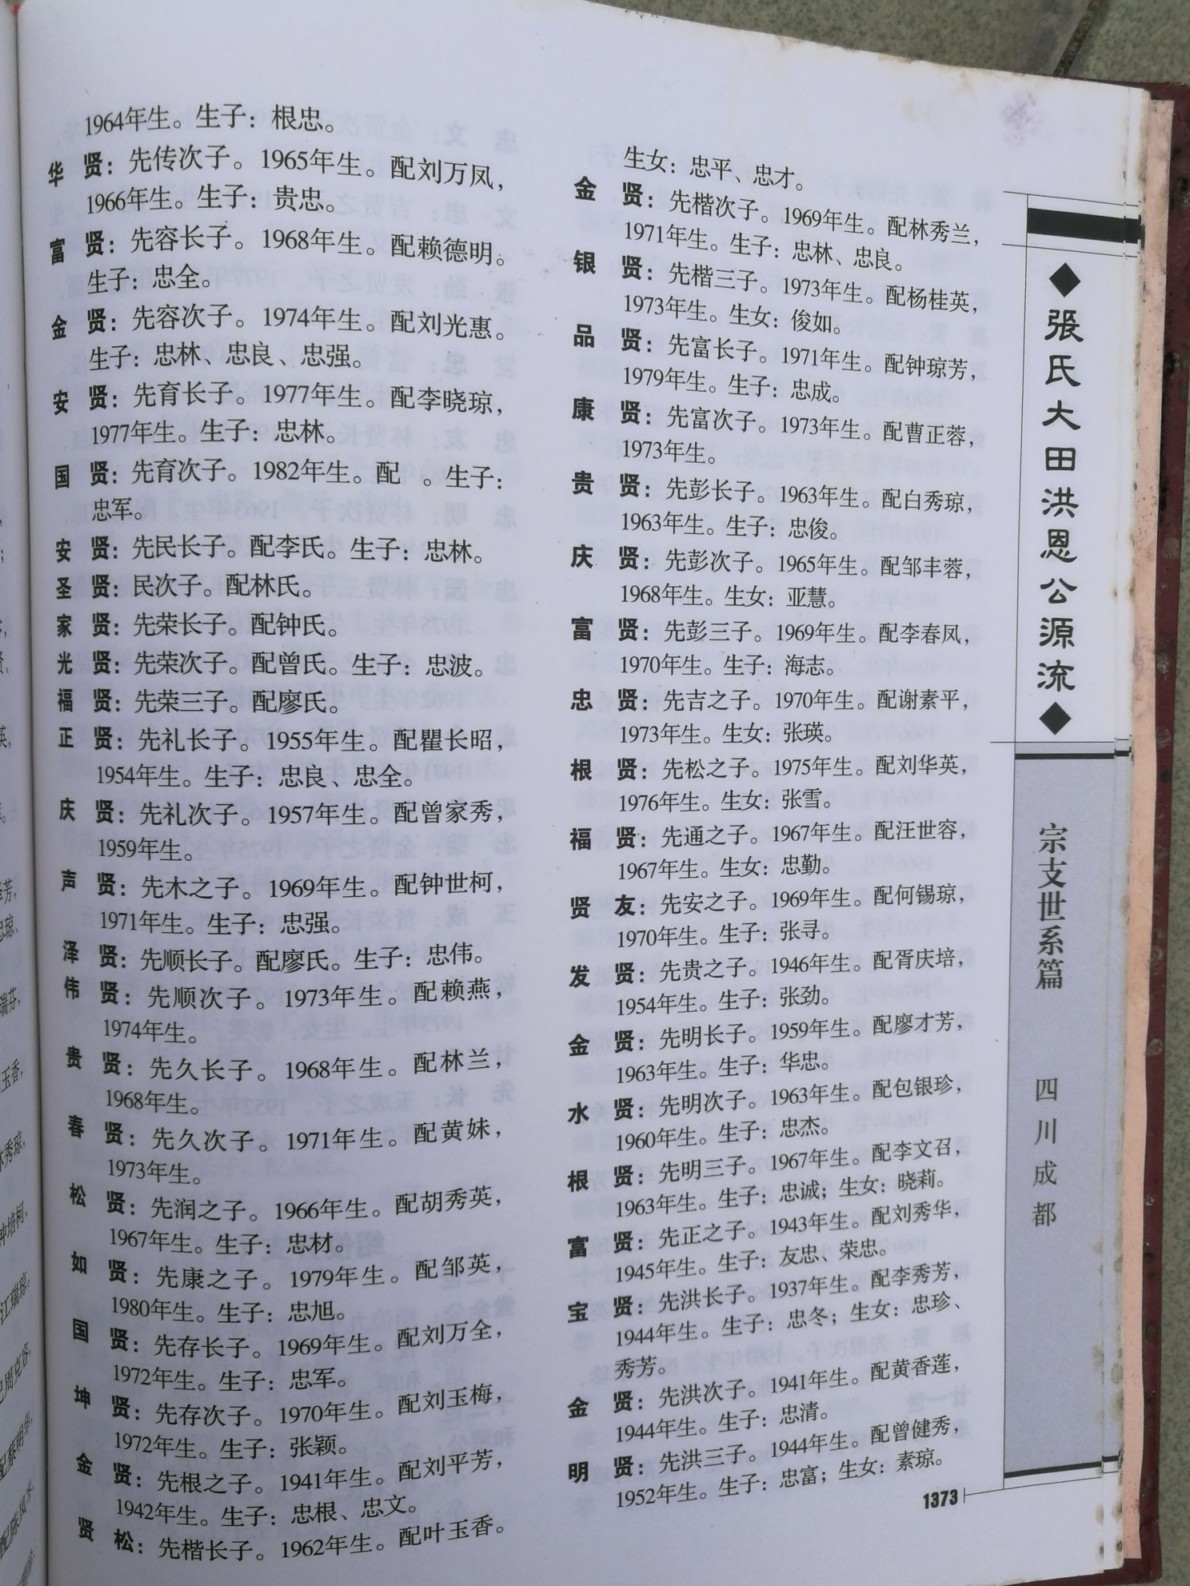 1964年生。生子：根忠。
华　贤：先传次子。1965年生。配刘万凤，
1966年生。生子：贵忠。
富　贤：先容长子。1968年生。配赖德明。
生子：忠全。
金　贤：先容次子。1974年生。配刘光惠。
生子：忠林、忠良、忠强。
安　贤：先育长子。1977年生。配李晓琼，
1977年生。生子：忠林。
国　贤：先育次子。1982年生。配　。生子：
忠军。
安　贤：先民长子。配李氏。生子：忠林。
圣　贤：民次子。配林氏。
家　贤：先荣长子。配钟氏。
光　贤：先荣次子。配曾氏。生子：忠波。
福　贤：先荣三子。配廖氏。
正　贤：先礼长子。1955年生。配瞿长昭，
1954年生。生子：忠良、忠全。
庆　贤：先礼次子。1957年生。配曾家秀，
1959年生。
声　贤：先木之子。1969年生。配钟世柯，
1971年生。生子：忠强。
泽　贤：先顺长子。配廖氏。生子：忠伟。
伟　贤：先顺次子。1973年生。配赖燕，
1974年生。
贵　贤：先久长子。1968年生。配林兰，
1968年生。
春　贤：先久次子。1971年生。配黄妹，
1973年生。
松　贤：先润之子。1966年生。配胡秀英，
1967年生。生子：忠材。
如　贤：先康之子。1979年生。配邹英，
1980年生。生子：忠旭。
国　贤：先存长子。1969年生。配刘万全，
1972年生。生子：忠军。
坤　贤：先存次子。1970年生。配刘玉梅，
1972年生。生子：张颖。
金　贤：先根之子。1941年生。配刘平芳，
1942年生。生子：忠根、忠文。
贤　松：先楷长子。1962年生。配叶玉香。
生女：忠平、忠才。
金　贤：先楷次子。1969年生。配林秀兰，
1971年生。生子：忠林、忠良。
银　贤：先楷三子。1973年生。配杨桂英，
1973年生。生女：俊如。
品　贤：先富长子。1971年生。配钟琼芳，
1979年生。生子：忠成。
康　贤：先富次子。1973年生。配曹正蓉，
1973年生。
贵　贤：先彭长子。1963年生。配白秀琼，
1963年生。生子：忠俊。
庆　贤：先彭次子。1965年生。配邹丰蓉，
1968年生。生女：亚慧。
富　贤：先彭三子。1969年生。配李春凤，
1970年生。生子：海志。
忠　贤：先吉之子。1970年生。配谢素平，
1973年生。生女：张瑛。
根　贤：先松之子。1975年生。配刘华英，
1976年生。生女：张雪。
福　贤：先通之子。1967年生。配汪世容，
1967年生。生女：忠勤。
贤　友：先安之子。1969年生。配何锡琼，
1970年生。生子：张寻。
发　贤：先贵之子。1946年生。配胥庆培，
1954年生。生子：张劲。
金　贤：先明长子。1959年生。配廖才芳，
1963年生。生子：华忠。
水　贤：先明次子。1963年生。配包银珍，
1960年生。生子：忠杰。
根　贤：先明三子。1967年生。配李文召，
1963年生。生子：忠诚；生女：晓莉。
富　贤：先正之子。1943年生。配刘秀华，
1945年生。生子：友忠、荣忠。
宝　贤：先洪长子。1937年生。配李秀芳，
1944年生。生子：忠冬；生女：忠珍、
秀芳。
金　贤：先洪次子。1941年生。配黄香莲，
1944年生。生子：忠清。
明　贤：先洪三子。1944年生。配曾健秀，
1952年生。生子：忠富；生女：素琼。
1373
◆張氏大田洪恩公源流◆
宗支世系篇
四川成都